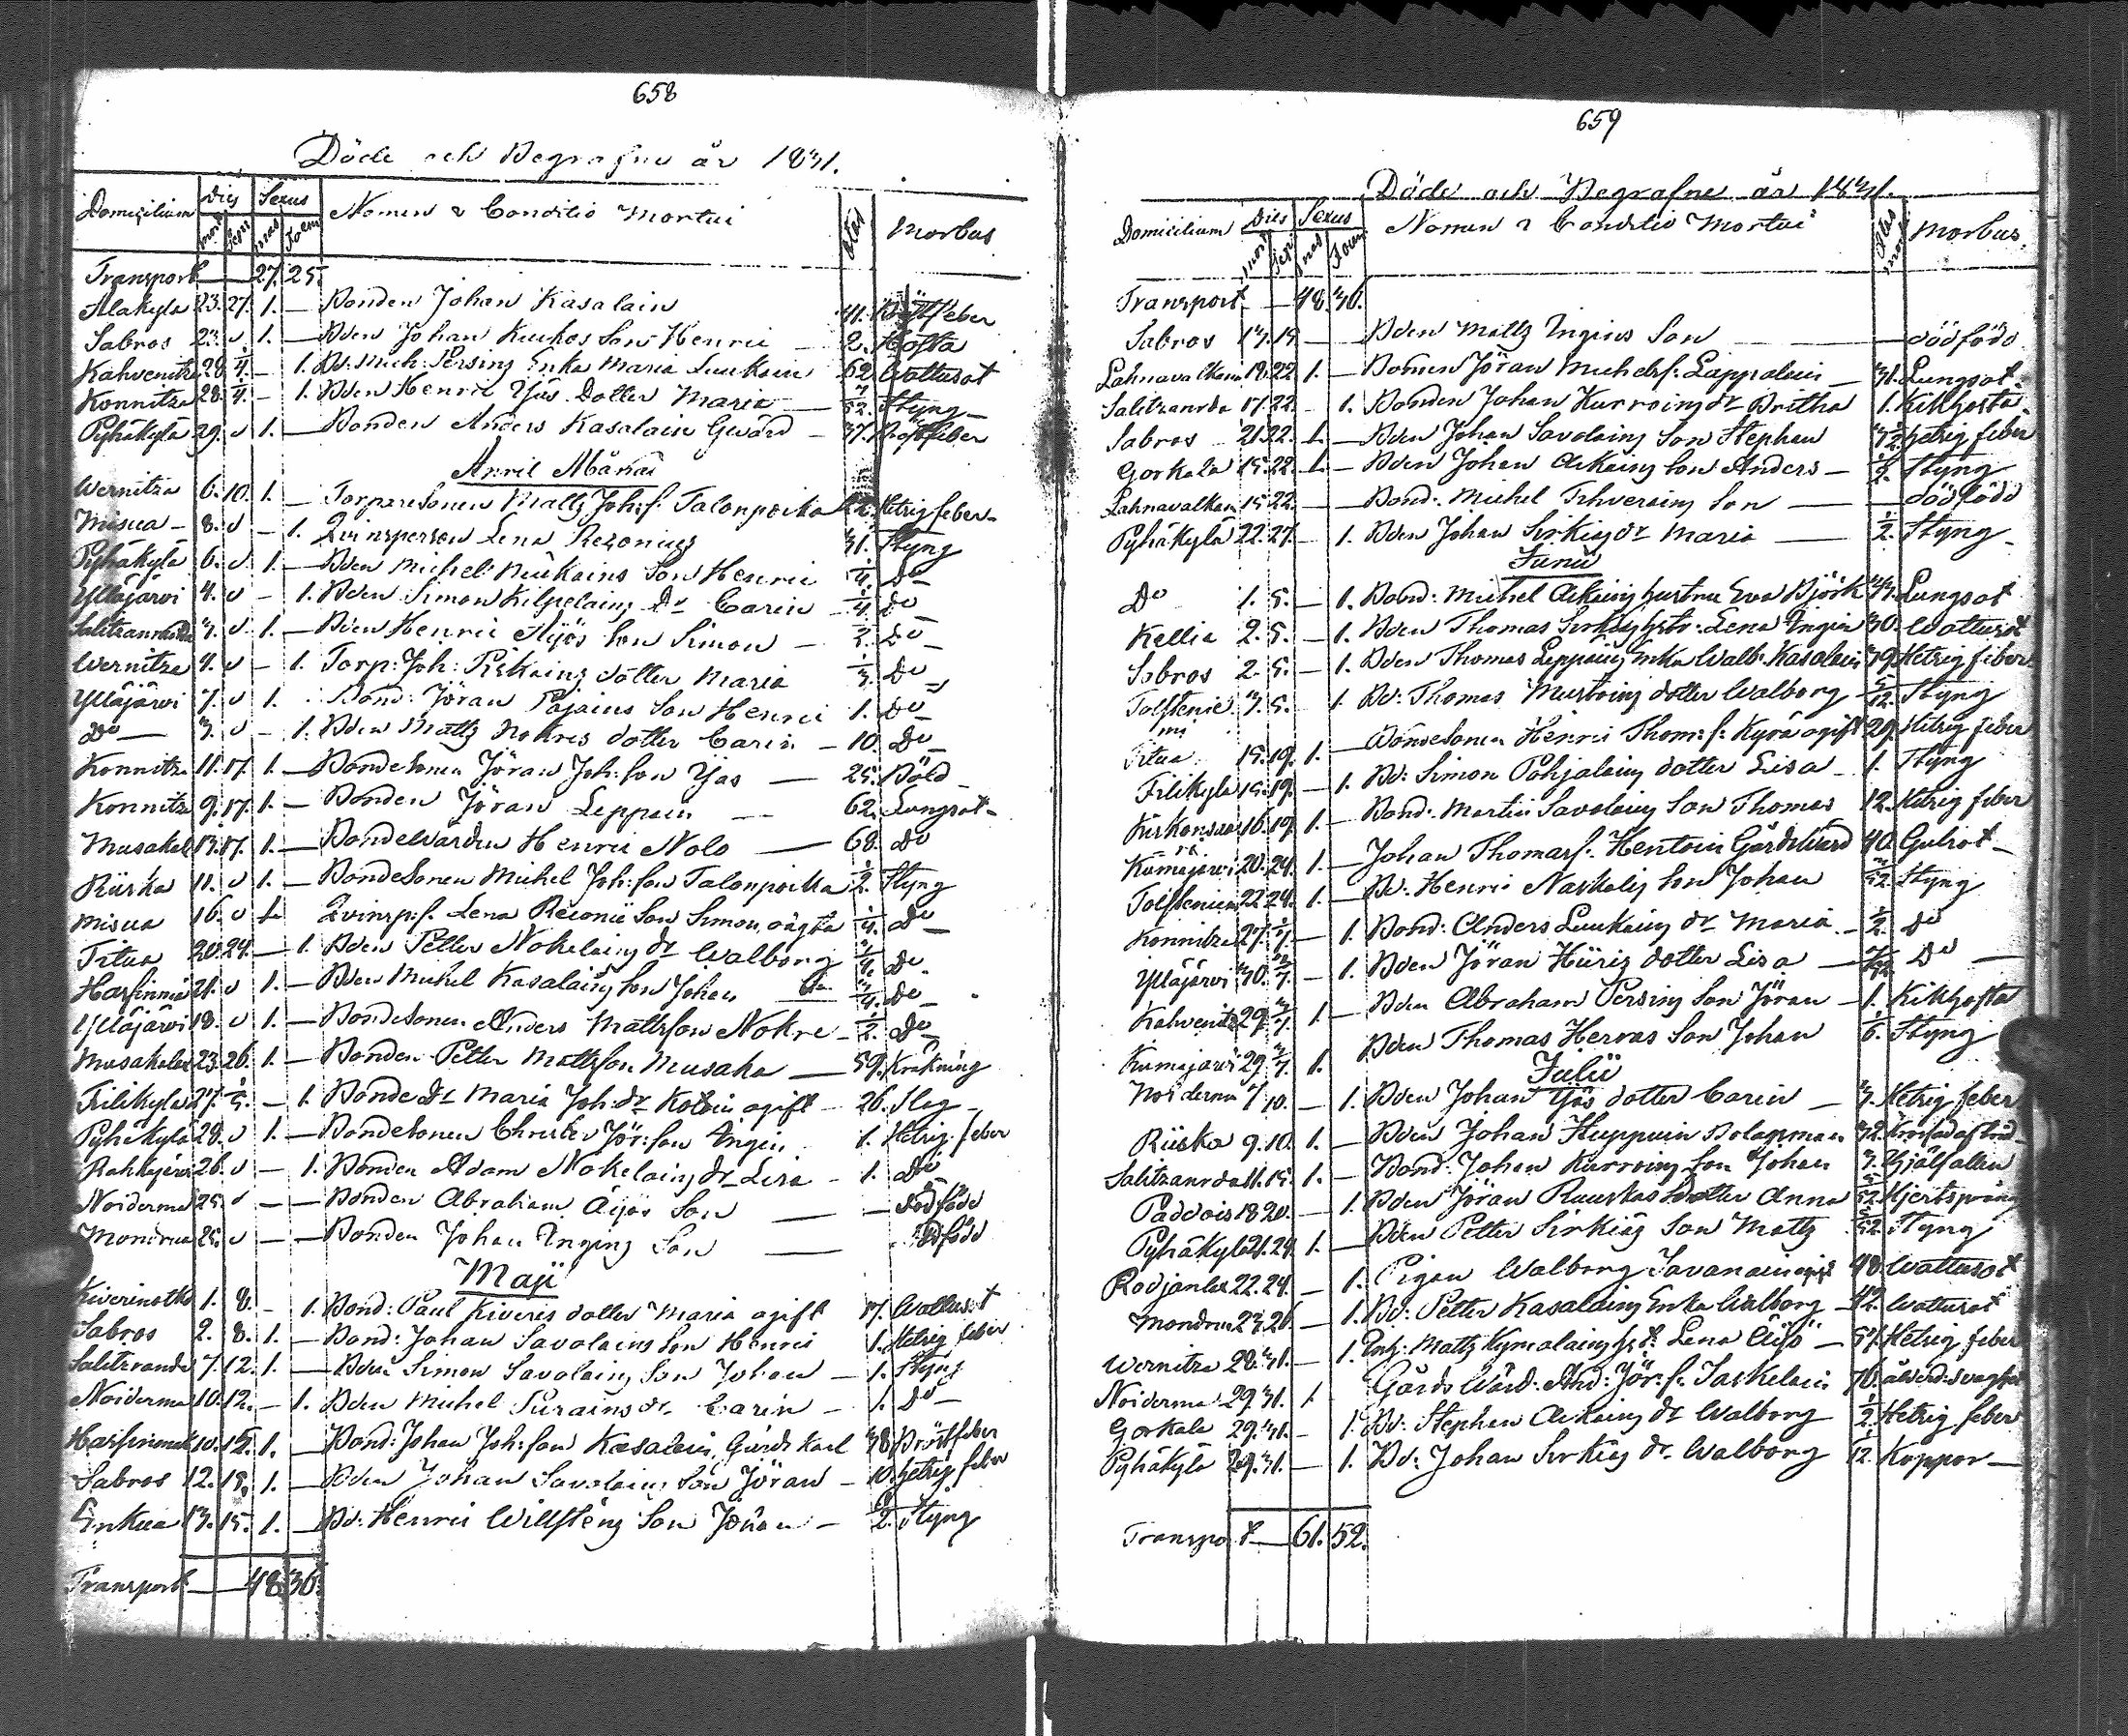 658
Döde och Begrafne år 1831.
Domicilium Dies Sexus Nomen & Conditio Mortui Ætas Morbus
mort. sep. mas. Foem
Transport — 27. 25.
Alakyla 23. 27. 1. — Bonden Johan Kasalain 41. Bröstfeber
Sabros 23. 1. — Bden Johan Kuckos Son Henric — 2. Hosta
Kahvenitza 28. — 1. Bd: Mich: Persing Enka Maria Luukain 62. Wattusot
Konnitza 28. — 1. Bden Henric Yjäs Dotter Maria — Styng —
Pyhäkylä 29. 1. — Bonden Anders Kasalain Gwärd — 37. Bröstfeber
April Månad
Wernitza 6. 10. 1. — Torparesonen Mattz Joh: s. Talonpoika Hetzig feber —
Misua — 8. — 1. Qvinsperson Lena Rezonius 31. Styng
Pyhäkylä 6. 1. — Bden Michel Son Henric Do
Ylläjärvi 4. — 1. Bden Simon Kilpelaing Dr Carin — Do
3. 1. — Bden Henric Äyjös Son Simon — Do
Wernitza 4. — 1. Torp: Joh: Piskaing dotter Maria Do
Ylläjärvi 7. 1. Bond: Jöran Pajains Son Henric 1. Do
Do — 3. — 1. Bden Mattz Nokres dotter Carin — 10. Do
Konnitza 11. 17. 1. — Bondesonen Jöran Joh: Son Yjäs — 25. Böld
Konnitz 9. 17. 1. — Bonden Jöran Leppain — 62. Lungsot —
Musakal 13. 17. 1. — Bondewärden Henric Nolo — 68. Do
Riiska 11. 1. — Bondesonen Michel Joh: son Talonpoika Styng
Misua 16. Qvinsp: s. Lena Rezonii Son Simon oägta Do
Titua 20. 24. — 1. Bden Petter Nokelaing dr Walborg Do
Harfinmä 21. 1. — Bden Michel Kasalaing Son Johan Do
Ylläjärvi 18. 1. — Bondesonen Anders Mattsson Nokre — Do
Musakala 23. 26. 1. — Bonden Petter Mattsson Musaka — 59. Kräkning
Filikyla 27. — 1. Bonde dr Maria Joh: dr Kotoin ogift — 26. Slag —
Pyhäkylä 28. 1. — Bondesonen Christer Jör: son Ingin 1. Hetzig feber
26. — 1. Bonden Adam Nokelaing dr Lisa — 1. Do
Noiderma 25. — — Bonden Abraham Äijös Son — — Dödföde
Mondrua 25. — — Bonden Johan Inging Son — Dödföde
Maji
1. 8. — 1. Bond: Paul Kiveris dotter Maria ogift 17. Wattusot
Sabros 2. 8. 1. — Bond: Johan Savolains Son Henric 1. Hetzig feber
Salitzranda 7. 12. 1. — Bden Simon Savolaing Son Johan — 1. Styng
Noiderma 10. 12. — 1. Bden Michel dr Carin — 1. Do —
10. 15. 1. — Bond: Johan Joh: Son Kasalain, Gårds karl 38. Bröstfeber
Sabros 12. 15. 1. — Bden Johan Savolaing Son Jöran — 10. hetzig feber
13. 15. 1. — Bd: Henric Willsténs Son Johan — Styng
Transport — 48. 36.
659
Döde och Begrafne år 1831.
Domicilium Dies Sexus Nomen & Conditio Mortui Morbus
mort. sep. mas. Foem
Transport — 48. 36.
Sabros 13. 19. — Bden Mattz Ingins Son — dödfödd
Lahnavalkama 18. 22. 1. — Bonden Jöran Michelss. Lappalain — 31. Lungsot.
Salitzranda 17. 22. — 1. Bonden Johan Kurroing dr Britha 1. Kikhosta
Sabros — 21. 22. 1. — Bden Johan Savolaing Son Stephan hetzig feber
Gorkala 15. 22. 1. — Bden Johan Äikäing Son Anders — Styng
Lahnavalkam 15. 22. — Bond: Michel Tihveraing Son — dödfödd
Pyhäkylä 22. 27. — 1. Bden Johan Sirkiäy dr Maria — Styng
Junii
Do 1. 5. — 1. Bond: Michel Äikäing hustru Eva Björk Lungsot
Kellia 2. 5. — 1. Bden Thomas Sirkiäy hstr: Lena Ingin 30. Wattusot
Sobros 2. 5. — 1. Bden Thomas Leppäing enka Walb: Kasalain 79. Hetzig feber
3. 5. 1. Bd: Thomas Mustoing dotter Walborg Styng
Titua 15. 19. 1. — Bondesonen Henric Thom: s. Kyrä ogift 29. Hetzig feber
Filikyla 15. 19. — 1. Bd: Simon Pohjalaing dotter Lisa — 1. Styng
16. 19. 1. — Bond: Martin Savolaing Son Thomas 12. Hetzig feber
20. 24. 1. — Johan Thomass. Hentoin Gårdswärd 40. Gulsot —
22. 24. 1. — Bd: Henric Naskalig Son Johan Styng
Konnitza 27. — 1. Bond: Anders Luukaing dr Maria — Do
Ylläjärvi 30. — 1. Bden Jöran Hüris dotter Lisa — Do —
Kahvenitza 29. 1. — Bden Abraham Persing Son Jöran — 1. Kikhosta
29. 1. Bden Thomas Hervas Son Johan Styng
Julii
Noiderma 7. 10. — 1. Bden Johan Yjäs dotter Carin — 3. Hetzig feber
Riiska 9. 10. 1. — Bden Johan Huppuin Bolagsman 32.
Salitzranda 11. 15. 1. — Bond: Johan Kurroing Son Johan 3. Ihjälfallen
Paddois 18. 20. — 1. Bden Jöran Ruuskas dotter Anna Hjertsprång
Pyhäkylä 21. 24. 1. — Bden Petter Sirkiäs Son Mattz Styng
Rodjanla 22. 24. — 1. Pigan Walborg Savanain ogift 48. Wattusot
Mondrua 23. 26. — 1. Bd: Petter Kasalaing Enka Walborg — 42. Wattusot
Wernitza 28. 31. — 1. Torp: Mattz Kymalaing Lena Äijö — 57. Hetzig feber
Noiderma 29. 31. 1. Gårds Wärd: And: Jör: s. Taskelain 76. ålderd: svaghet
Gorkala 29. 31. — 1. Bd: Stephan Äikäing dr Walborg Hetzig feber
Pyhäkylä 29. 31. — 1. Bd: Johan Sirkiäy dr Walborg Koppor —
Transport — 61. 52.